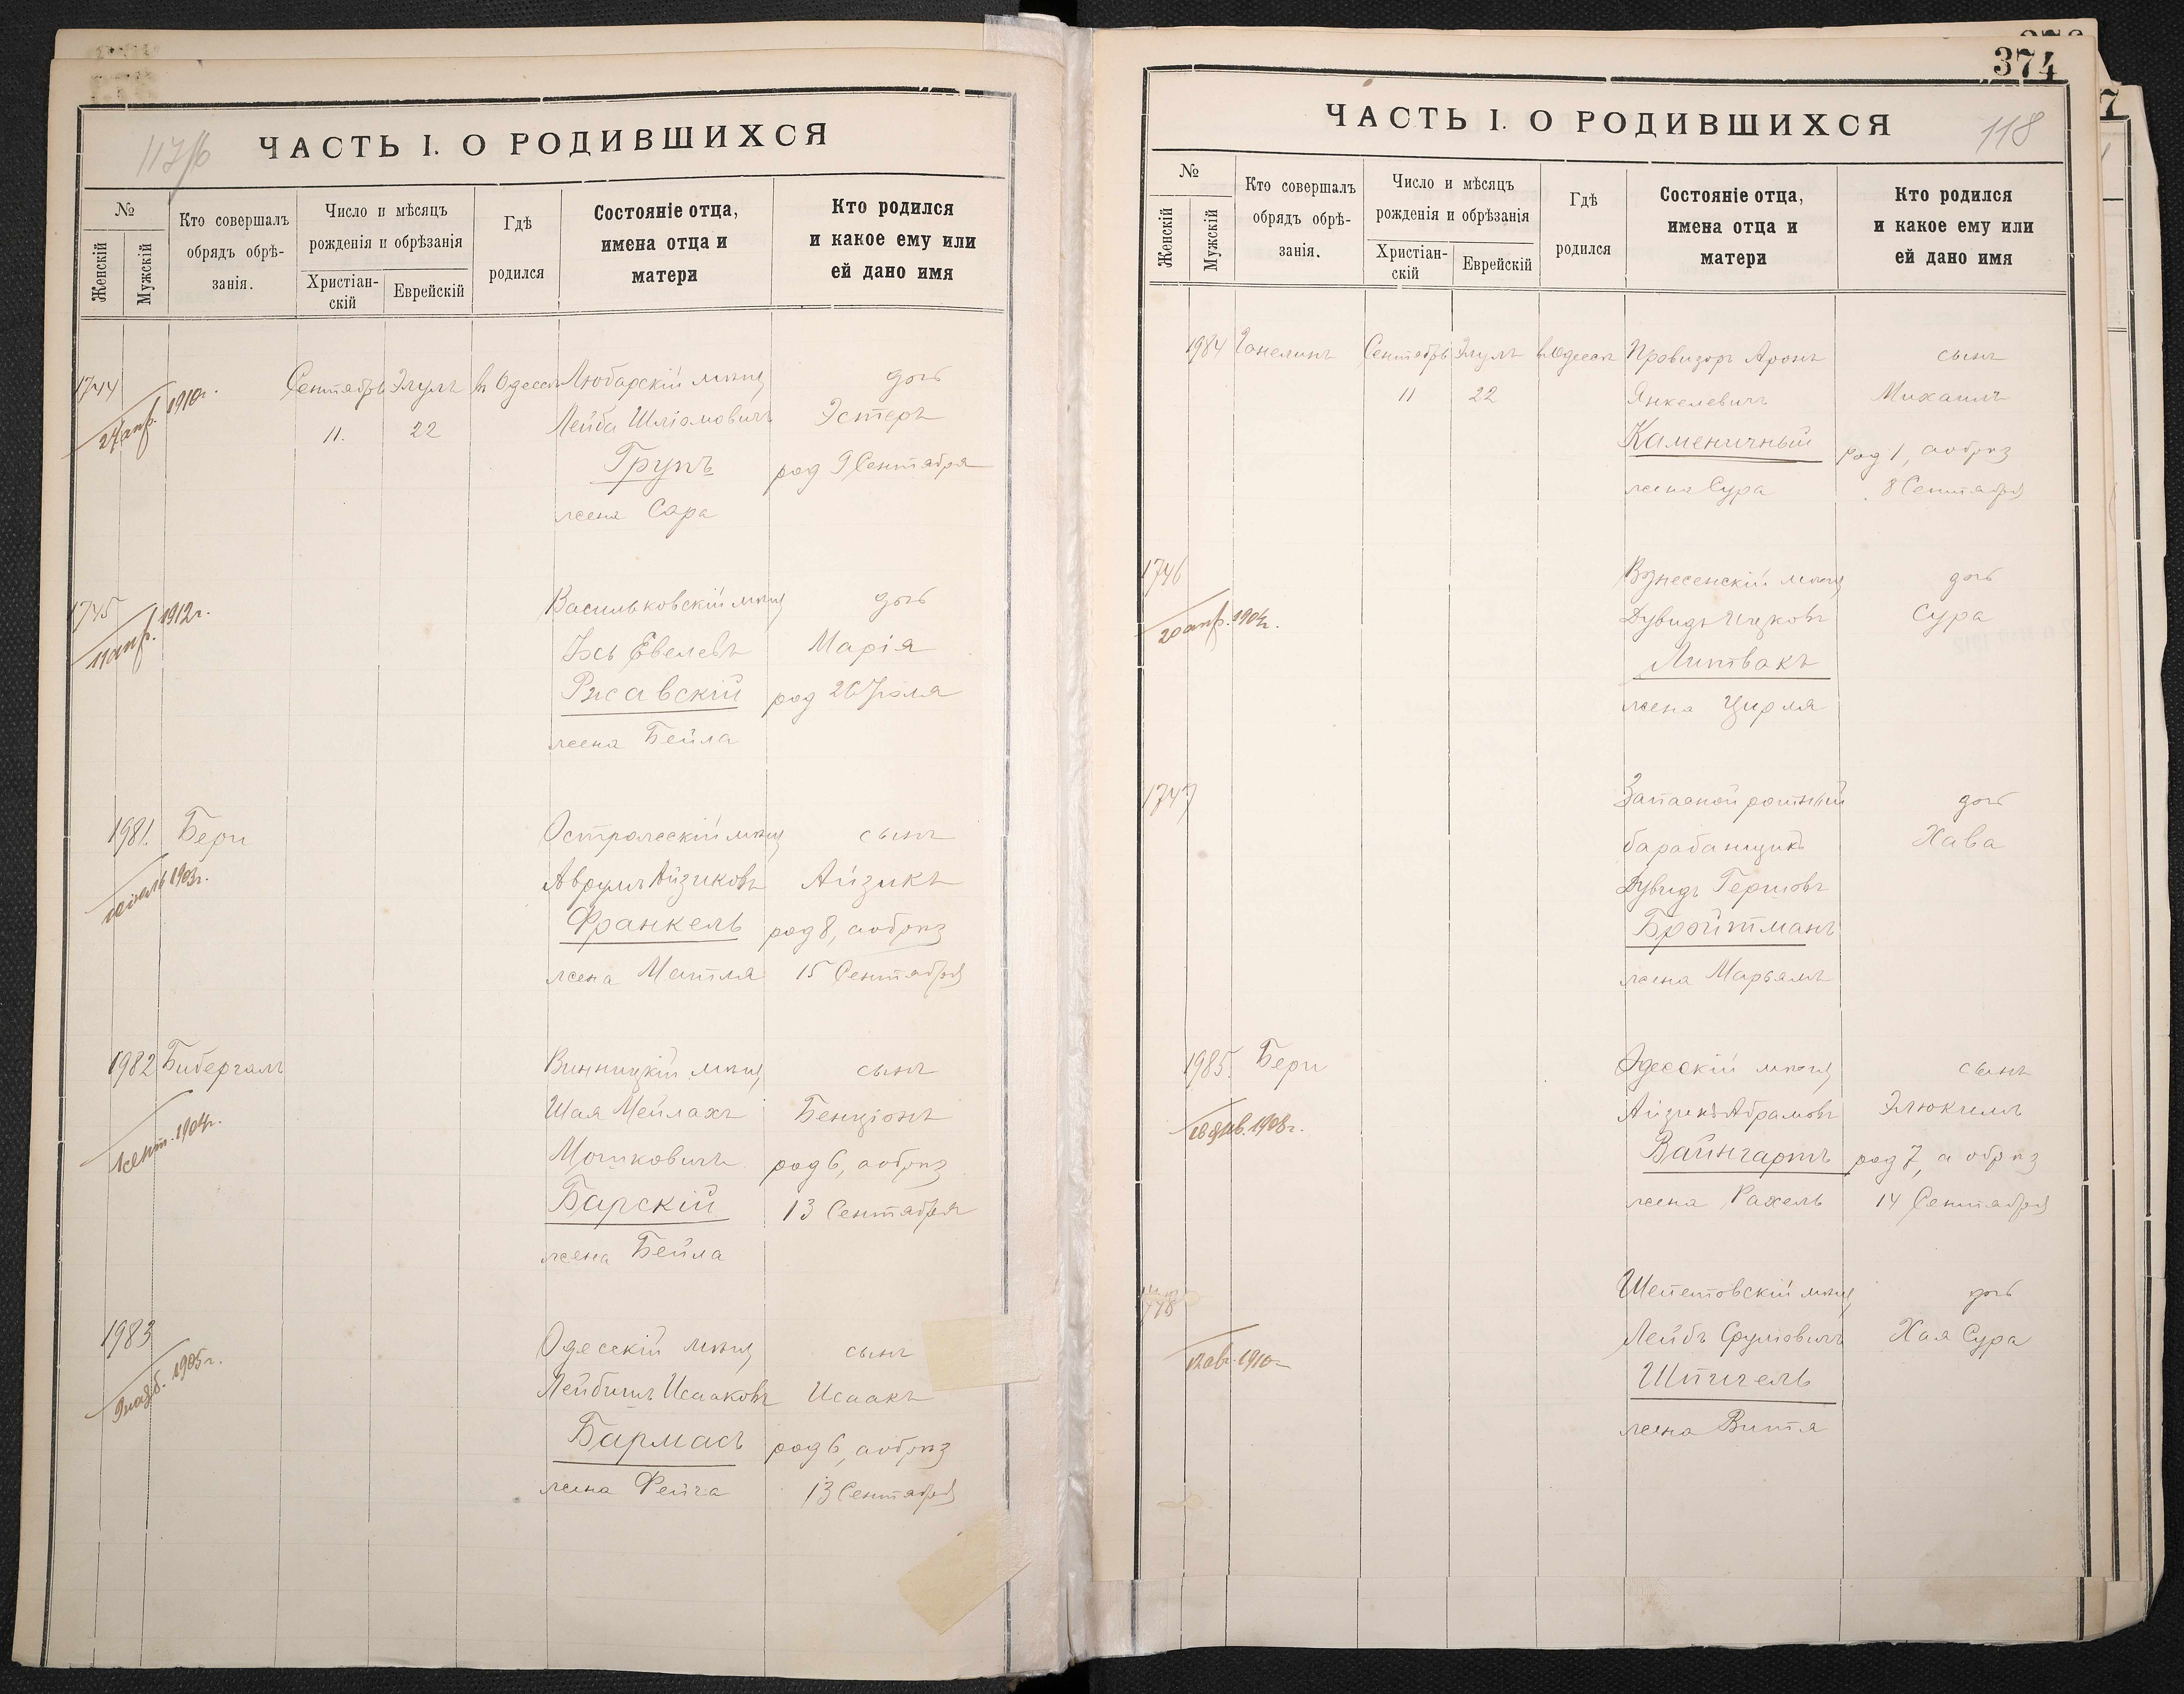 117/б
ЧАСТЬ I. О РОДИВШИХСЯ
№
Женскій
Мужскій
Кто совершалъ
обрядъ обрѣ-
занія.
Число и мѣсяцъ
рожденія и обрѣзанія
Христіан-
скій
Еврейскій
Гдѣ
родился
Состояніе отца,
имена отца и
матери
Кто родился
и какое ему или
ей дано имя
1744
24 апр. 1910г.
Сентябрь Элулъ въ Одессѣ Любарскій мѣщ дочь
11. 22 Лейба Шліомовичъ Эстеръ
Групъ род 9 Сентября
жена Сара
1745
11 апр. 1912г.
Васильковскій мѣщ дочь
Іось Евелевъ Марія
Ржавскій род 26 Іюля
жена Бейла
1981. Бери Острожскій мѣщ сынъ
1903г.
Аврумъ Айзиковъ Айзикъ
Франкель род 8, а обрѣз
жена Матля 15 Сентября
1982 Бибергалъ Винницкій мѣщ сынъ
1 сент. 1904г.
Шая Мейлахъ Бенціонъ
Мошковичъ род 6, а обрѣз
Барскій 13 Сентября
жена Бейла
1983 Одесскій мѣщ сынъ
1905г.
Лейбишъ Исааковъ Исаакъ
Бармасъ род 6, а обрѣз
жена Фейга 13 Сентября
374
118
ЧАСТЬ I. О РОДИВШИХСЯ
№
Женскій
Мужскій
Кто совершалъ
обрядъ обрѣ-
занія.
Число и мѣсяцъ
рожденія и обрѣзанія
Христіан-
скій
Еврейскій
Гдѣ
родился
Состояніе отца,
имена отца и
матери
Кто родился
и какое ему или
ей дано имя
1984 Ганелинъ Сентябрь Элулъ въ Одессѣ Провизоръ Аронъ сынъ
11 22 Янкелевичъ Михаилъ
Каменичный род 1, а обрѣз
жена Сура 8 Сентября
1746 Вознесенскій мѣщ дочь
20 апр. 1904г.
Дувидъ Ицковъ Сура
Литвакъ
жена Цирля
1747 Запасной ротный дочь
барабанщикъ Хава
Дувидъ Гершовъ
Бройтманъ
жена Марьямъ
1985. Бери Одесскій мѣщ сынъ
1908г.
Айзикъ Абрамовъ Элюкимъ
Вайнгартъ род 7, а обрѣз
жена Рахель 14 Сентября
Шепетовскій мѣщ дочь
12 ав. 1910г.
Лейбъ Сруліовичъ Хая Сура
Шпигель
жена Витя